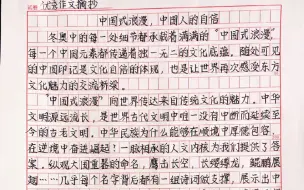 优秀作文摘抄
中国式浪漫，中国人的自信
冬奥中的每一处细节都承载着满满的“中国式浪漫”
每一个中国元素都传递着独一无二的文化底蕴。随处可见
的中国印记是文化自信的体现，也是让世界再次感受东方
文化魅力的交流桥梁。
“中国式浪漫”向世界传达来自传统文化的魅力。中华
文明源远流长，是世界古代文明中唯一没有中断而延续至
今的古老文明。中华民族为什么能够在顺境中厚德包容，
在逆境中奋进崛起！一脉相承的人文内核为我们提供了答
案。纵观大国重器的命名，鹰击长空，长缨缚龙，鲲鹏展
翅……几乎每个名字背后都有一组诗词做支撑，展示出中